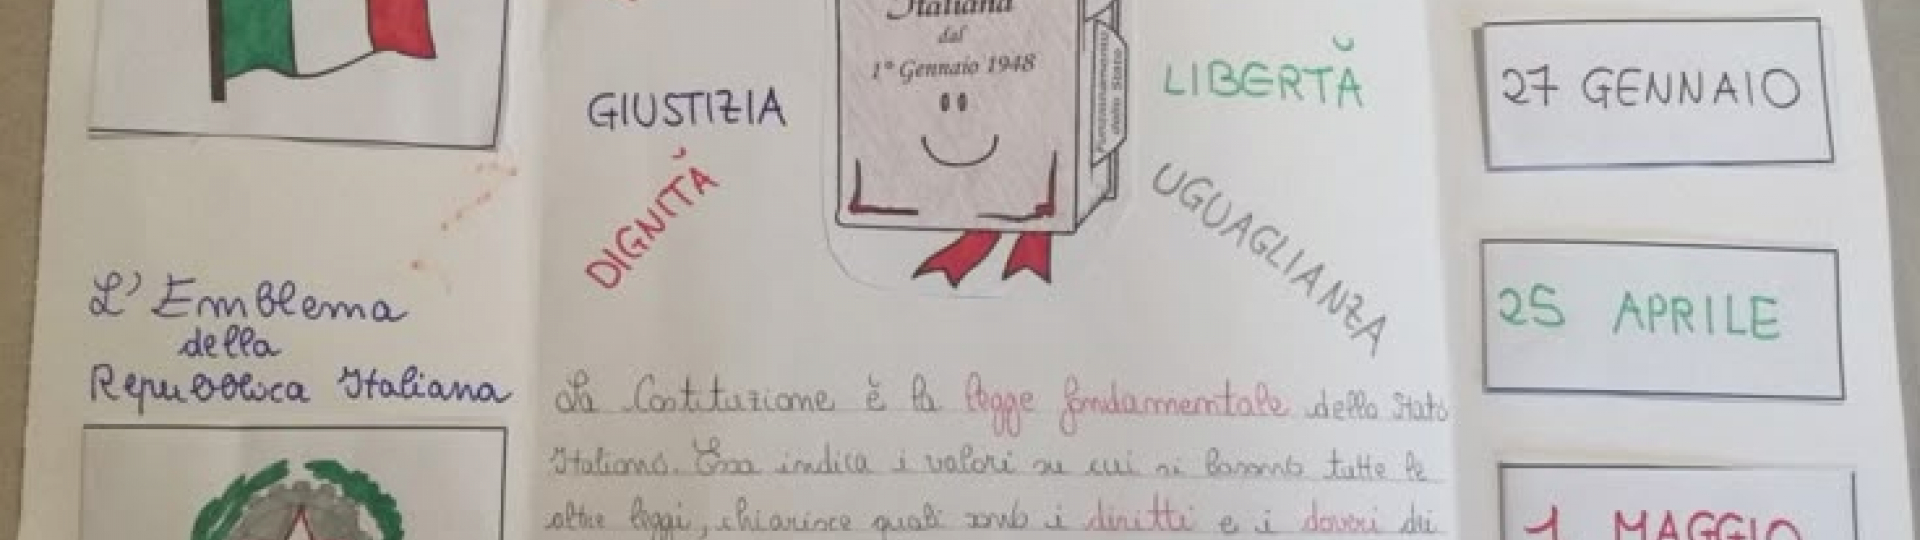 Italiana
dal
1° Gennaio 1948
Funzionamento
dello Stato
GIUSTIZIA
DIGNITÀ
LIBERTÀ
UGUAGLIANZA
L'Emblema
della
Repubblica Italiana
La Costituzione è la legge fondamentale dello Stato
Italiano. Essa indica i valori su cui si basano tutte le
altre leggi, chiarisce quali sono i diritti e i doveri dei
27 GENNAIO
25 APRILE
1 MAGGIO